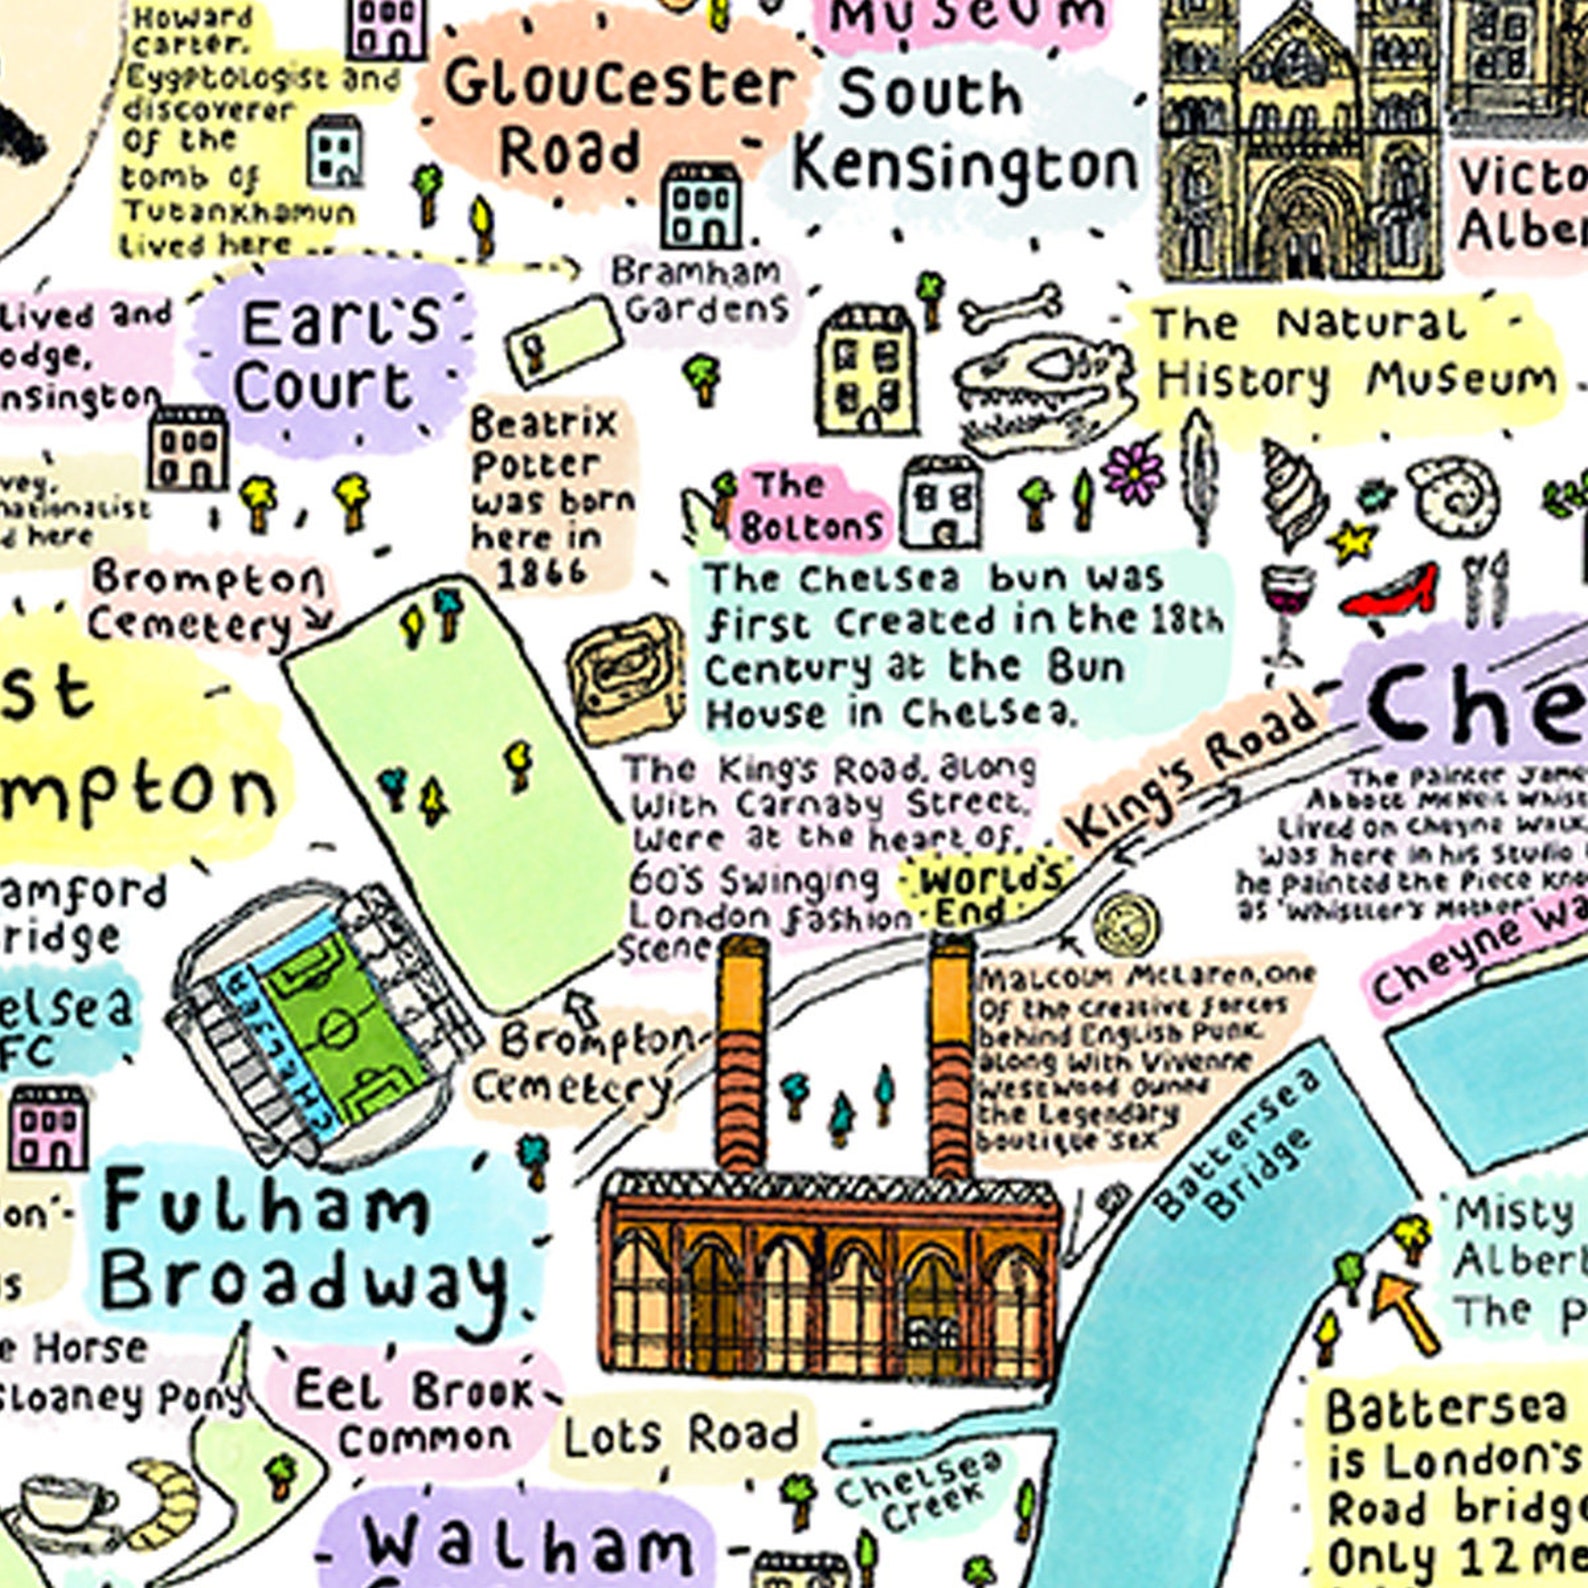 Howard
Carter.
Eygptologist and
discoverer
of the
tomb of
Tutankhamun
Lived here
Gloucester
Road
Museum
South
Kensington
Victo
Alber
Bramham
Gardens
Lived and
odge,
nsington
Earl's
Court
The Natural
History Museum
Beatrix
Potter
was born
here in
1866
vey,
nationalist
d here
The
Boltons
Brompton
Cemetery
The Chelsea bun was
first created in the 18th
Century at the Bun
House in Chelsea.
st
mpton
King's Road
Che
The King's Road, along
With Carnaby Street,
Were at the heart of
60's Swinging
London fashion
Scene
World's
End
The Painter Jame
Abbott McNeil Whist
Lived on Cheyne Walk
Was here in his studio
he Painted the Piece Kno
as 'Whistler's Mother'
Cheyne Wa
amford
ridge
elsea
FC
CHELSEA
CHELSEA
Brompton
Cemetery
Malcolm McLaren, one
of the creative forces
behind English Punk
along with Vivienne
Westwood owned
the Legendary
boutique 'Sex'
Battersea
Bridge
Fulham
Broadway
on'
s
'Misty
Albert
The P
e Horse
Sloaney Pony
Eel Brook
Common
Lots Road
Chelsea
Creek
Battersea
is London's
Road bridge
Only 12 me
Walham